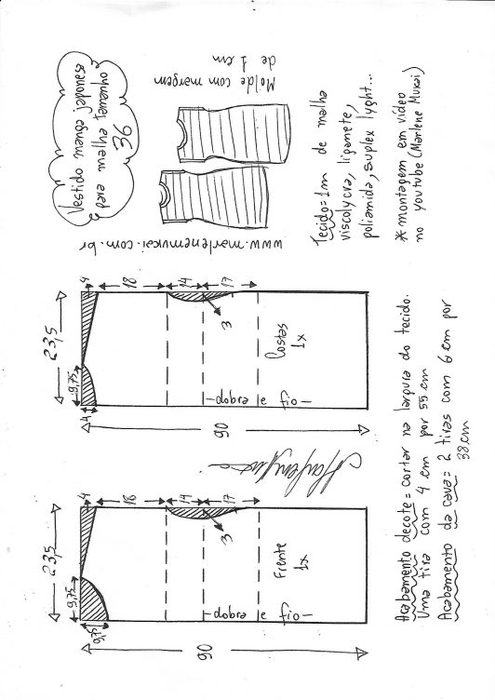 Vestido manga japonesa
para mulher tamanho
36
Molde com margem
de 1 cm
www.marlenemukai.com.br
Tecido=1m de malha
viscolycra, liganete,
poliamida, suplex lyght...
* montagem em vídeo
no youtube (Marlene Mukai)
23,5
9,75
9,75
4
18
14
17
3
Frente
1x
fio e dobra
90
23,5
9,75
4
4
18
14
17
3
Costas
1x
fio e dobra
90
Acabamento decote= cortar na largura do tecido.
Uma tira com 4 cm por 55 cm
Acabamento da cava= 2 tiras com 6 cm por
38 cm